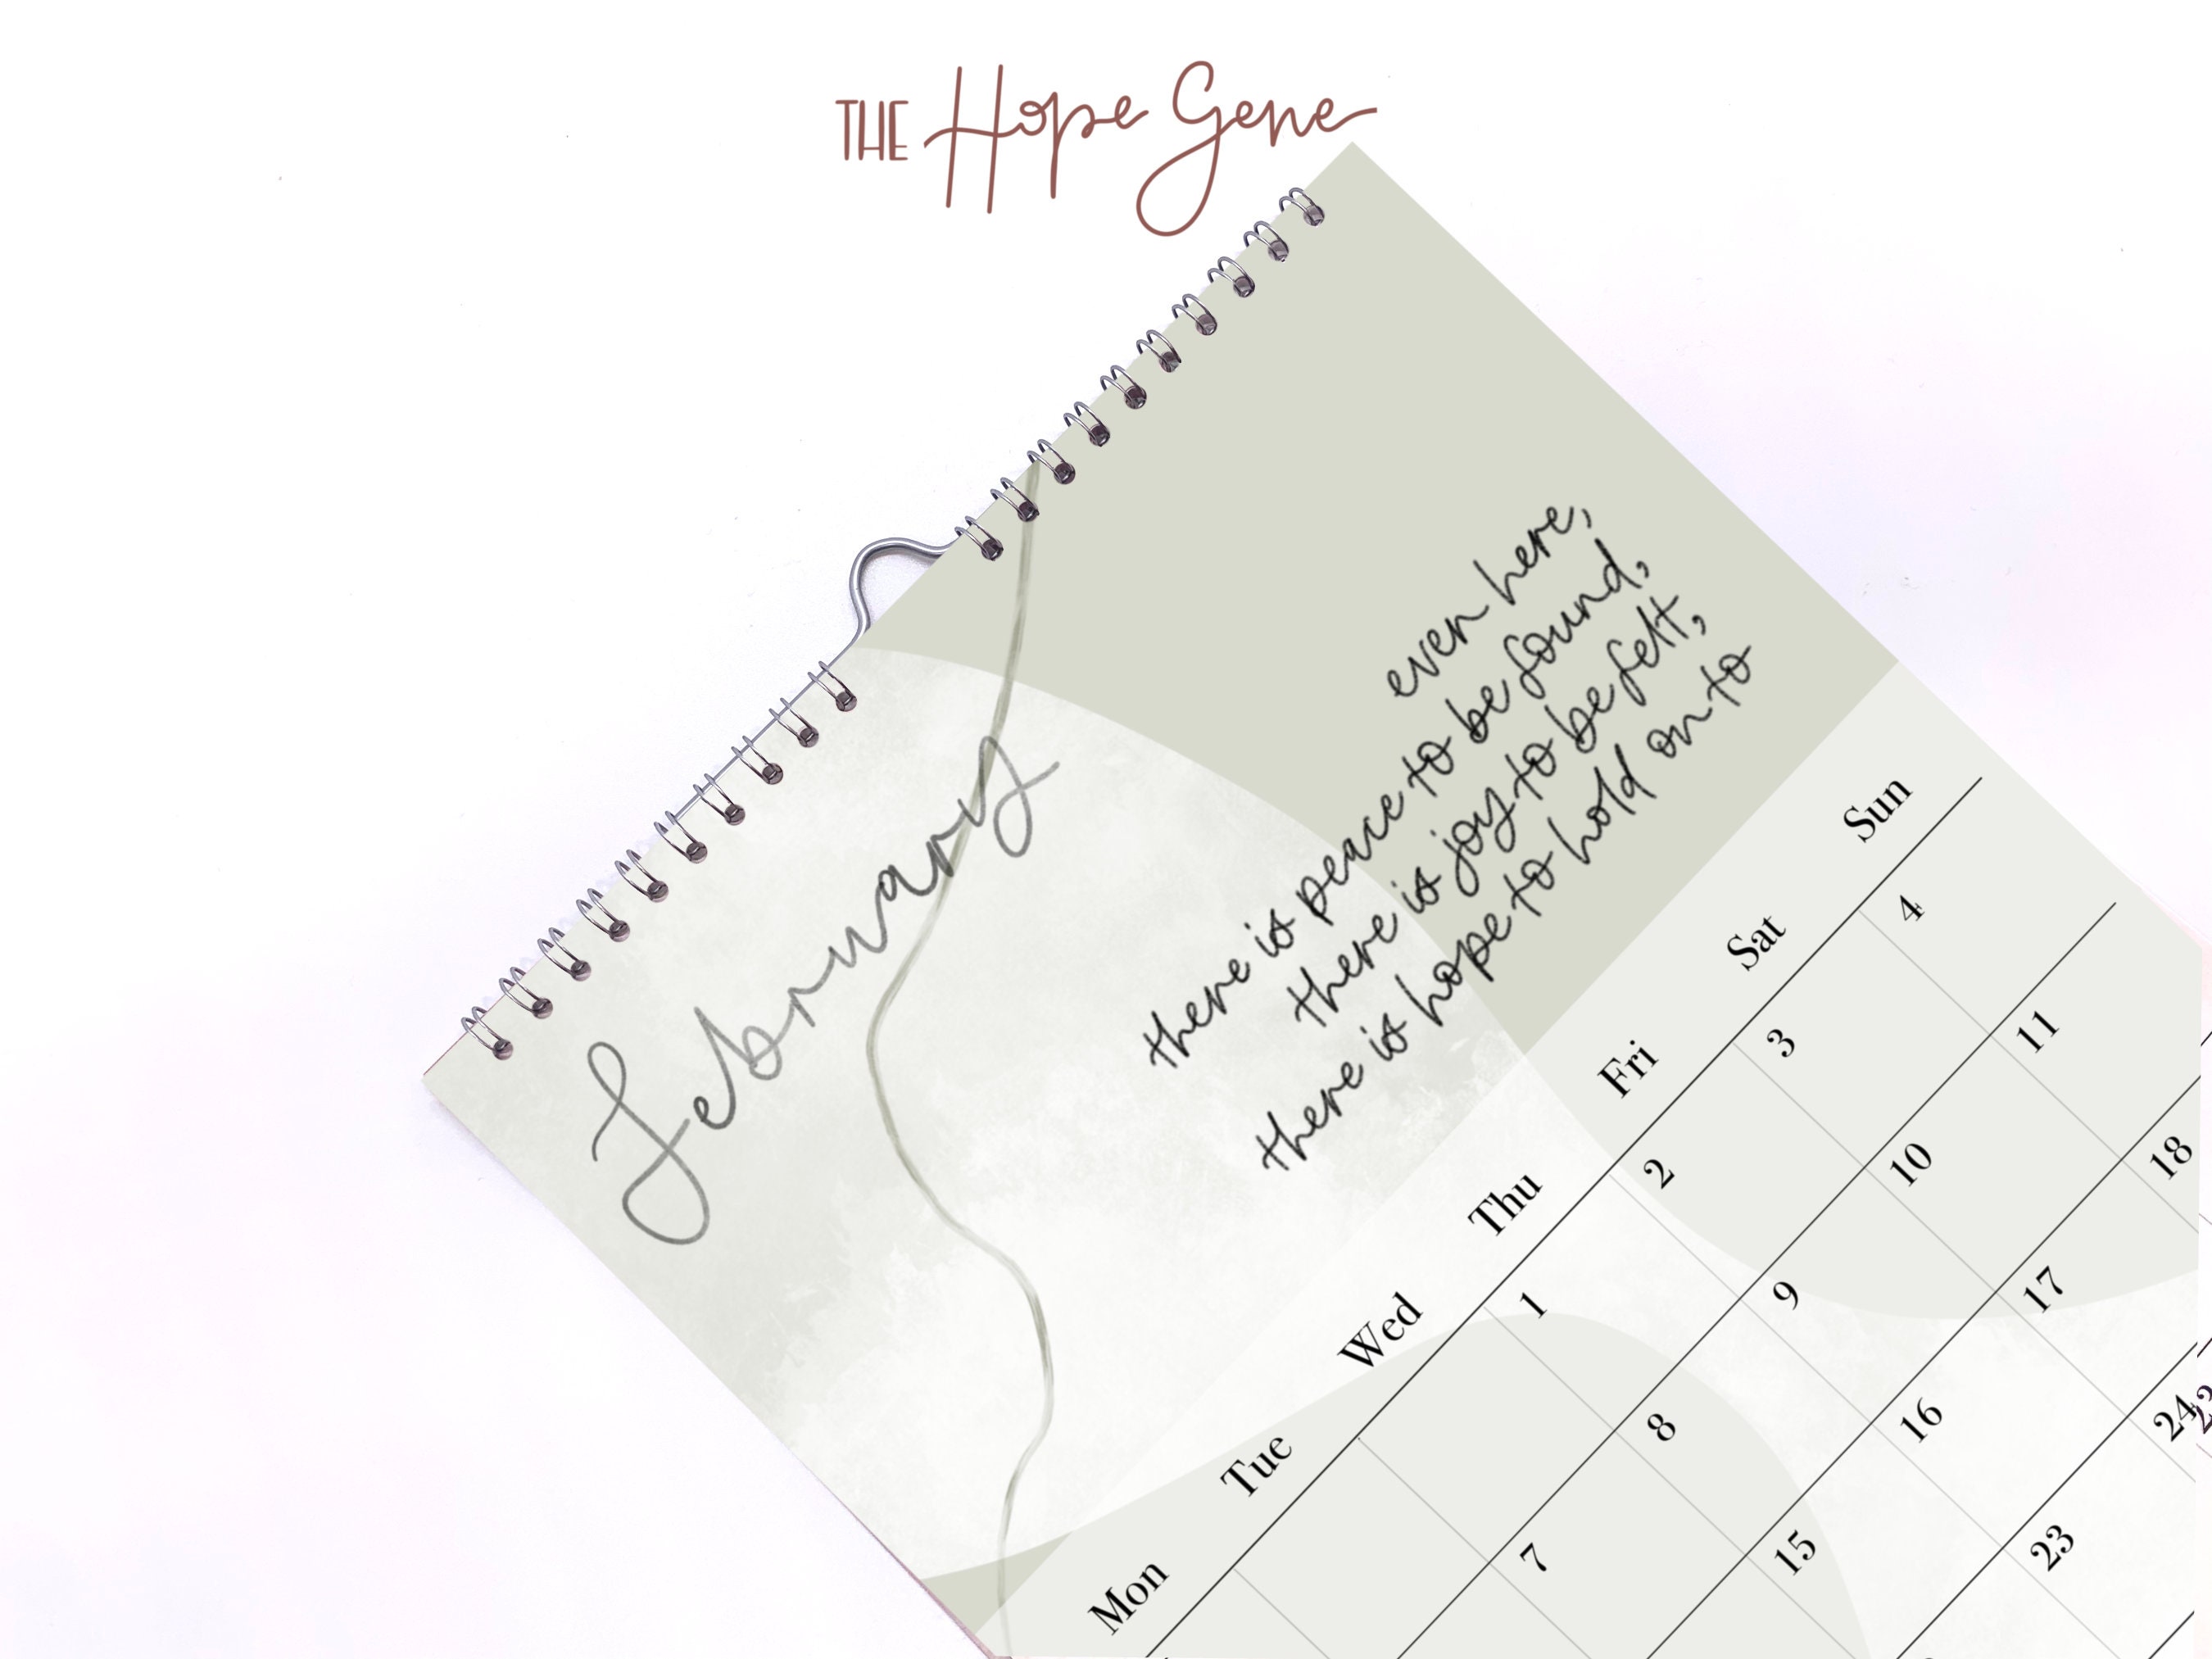 THE Hope Gene
February
even here,
there is peace to be found,
there is joy to be felt,
there is hope to hold on to
Mon Tue Wed Thu Fri Sat Sun
1 2 3 4
7 8 9 10 11
15 16 17 18
23 24